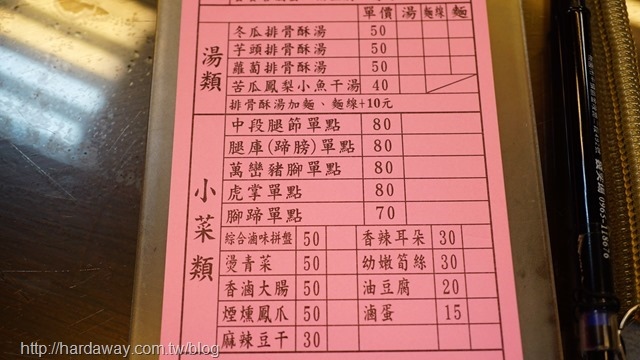 單價 湯 麵線 麵
湯類
冬瓜排骨酥湯 50
芋頭排骨酥湯 50
蘿蔔排骨酥湯 50
苦瓜鳳梨小魚干湯 40
排骨酥湯加麵、麵線+10元
小菜類
中段腿節單點 80
腿庫(蹄膀)單點 80
萬巒豬腳單點 80
虎掌單點 80
腳蹄單點 70
綜合滷味拼盤 50 香辣耳朵 30
燙青菜 50 幼嫩筍絲 30
香滷大腸 50 油豆腐 20
煙燻鳳爪 50 滷蛋 15
麻辣豆干 30
http://hardaway.com.tw/blog